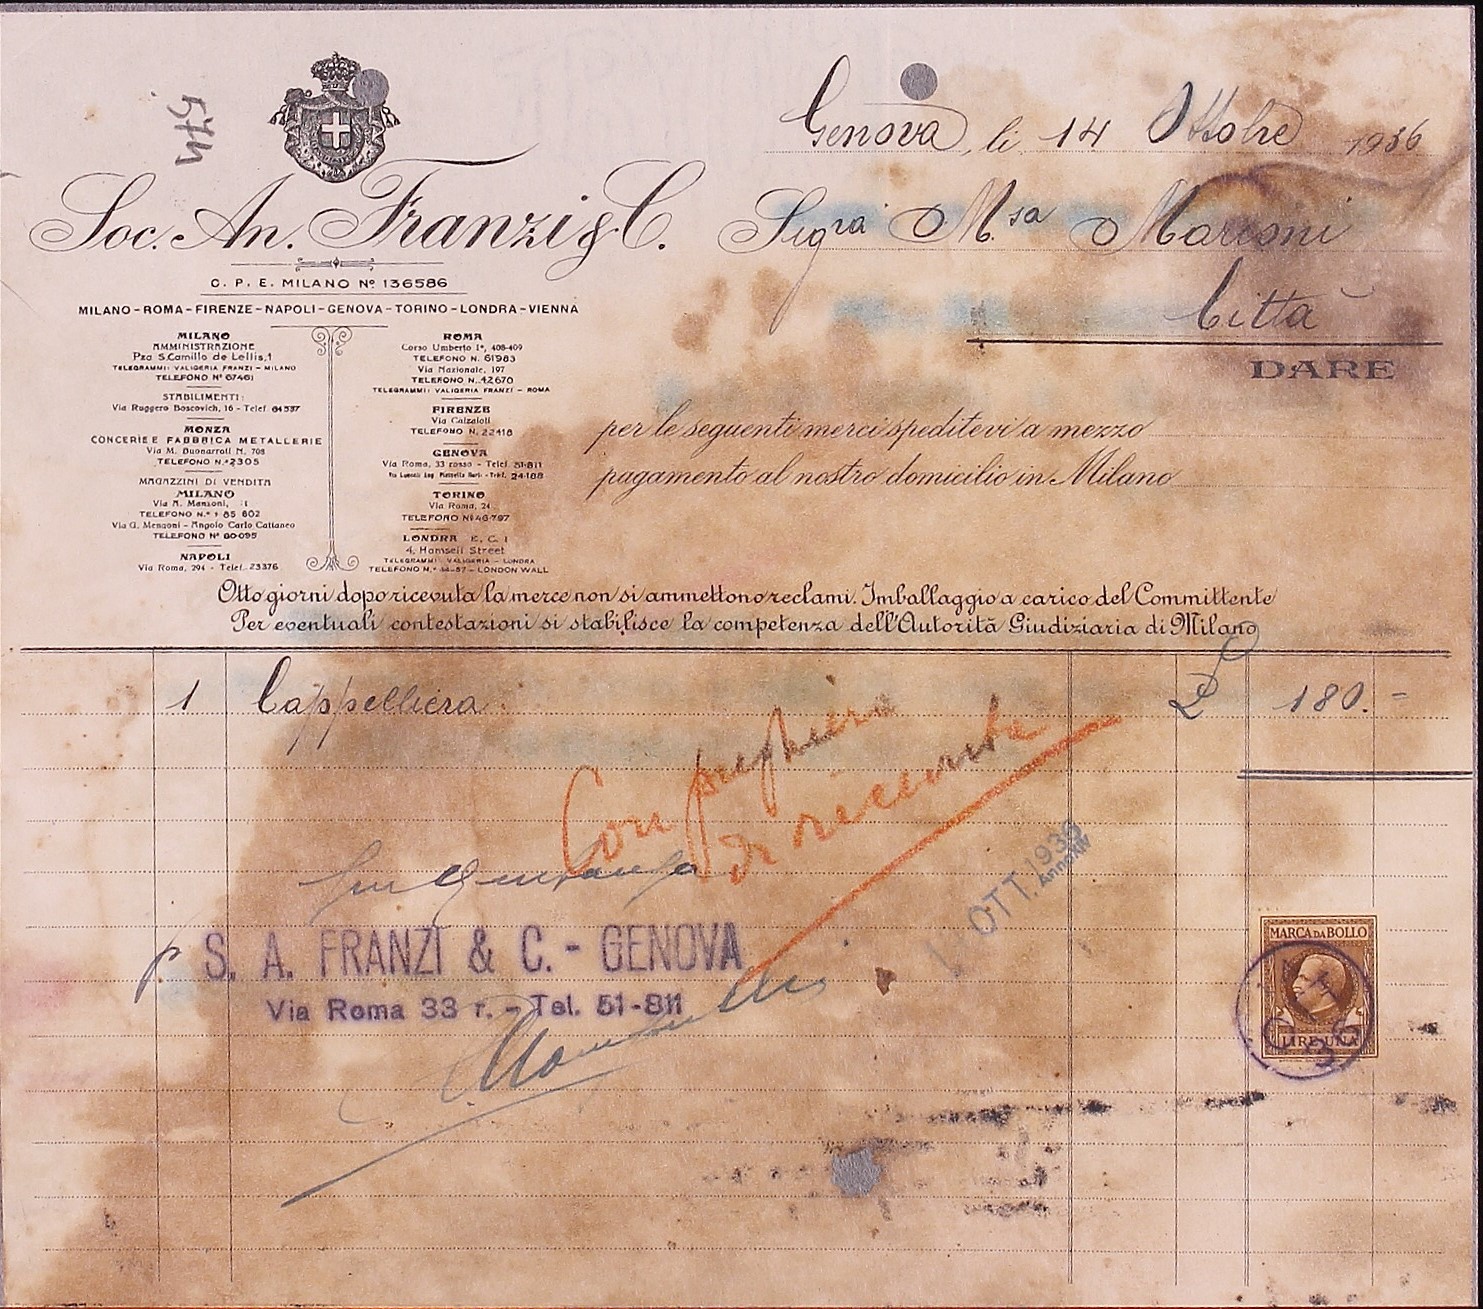 547
Genova, li 14 Ottobre 1936
Soc. An. Franzi & C.
Sig.ra M.sa Marconi
Città
DARE
C. P. E. MILANO Nº 136586
MILANO - ROMA - FIRENZE - NAPOLI - GENOVA - TORINO - LONDRA - VIENNA
MILANO
AMMINISTRAZIONE
Pza S.Camillo de Lellis,1
TELEGRAMMI: VALIGERIA FRANZI - MILANO
TELEFONO Nº 67461
STABILIMENTI:
Via Ruggero Boscovich, 16 - Telef. 64537
MONZA
CONCERIE E FABBRICA METALLERIE
Via M. Buonarroti N. 708
TELEFONO N.º 2305
MAGAZZINI DI VENDITA
MILANO
Via A. Manzoni,
TELEFONO N.º 85 802
Via G. Mengoni - Angolo Carlo Cattaneo
TELEFONO Nº 80-095
NAPOLI
Via Roma, 294 - Telef. 23376
ROMA
Corso Umberto Iº, 408-409
TELEFONO N. 61983
Via Nazionale, 197
TELEFONO N. 42670
TELEGRAMMI: VALIGERIA FRANZI - ROMA
FIRENZE
Via Calzaioli
TELEFONO N. 22418
GENOVA
Via Roma, 33 rosso - Telef. 51-811
24-188
TORINO
Via Roma, 24
TELEFONO Nº 46-797
LONDRA E. C. 1
4, Hamsell Street
TELEGRAMMI: VALIGERIA - LONDRA
LONDON WALL
per le seguenti merci speditevi a mezzo
pagamento al nostro domicilio in Milano
Otto giorni dopo ricevuta la merce non si ammettono reclami. Imballaggio a carico del Committente
Per eventuali contestazioni si stabilisce la competenza dell'Autorità Giudiziaria di Milano
1 Cappelliera £ 180.=
Con preghiera
di ricevuta
OTT. 1936
Anno XIV
p S. A. FRANZI & C. - GENOVA
Via Roma 33 r. - Tel. 51-811
MARCA DA BOLLO
LIRE UNA